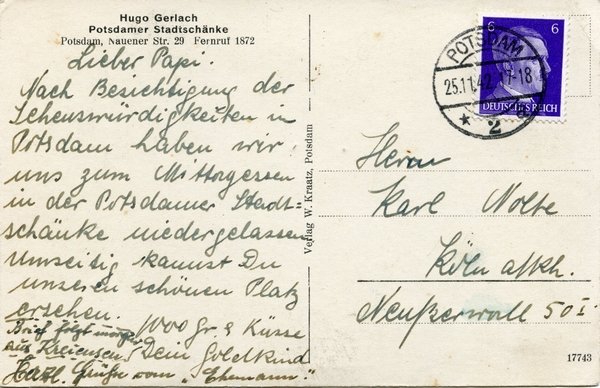 Hugo Gerlach
Potsdamer Stadtschänke
Potsdam, Nauener Str. 29 Fernruf 1872
Lieber Papi.
Nach Besichtigung der
Sehenswürdigkeiten in
Potsdam haben wir
uns zum Mittagessen
in der Potsdamer Stadt-
schänke niedergelassen
Umseitig kannst Du
unseren schönen Platz
ersehen.
Brief folgt
aus Kreiensen
1000 Gr. & Küsse
Dein Goldkind
Herzl. Grüße vom „Ehemann"
Verlag W. Kraatz, Potsdam
6 6
DEUTSCHES REICH
POTSDAM
25.11.42.17-18
* 2
Herrn
Karl Nolte
Köln a/Rh.
Neußerwall 50 I
17743